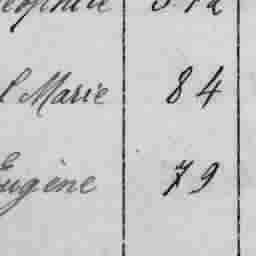 l Marie 84
Eugène 79